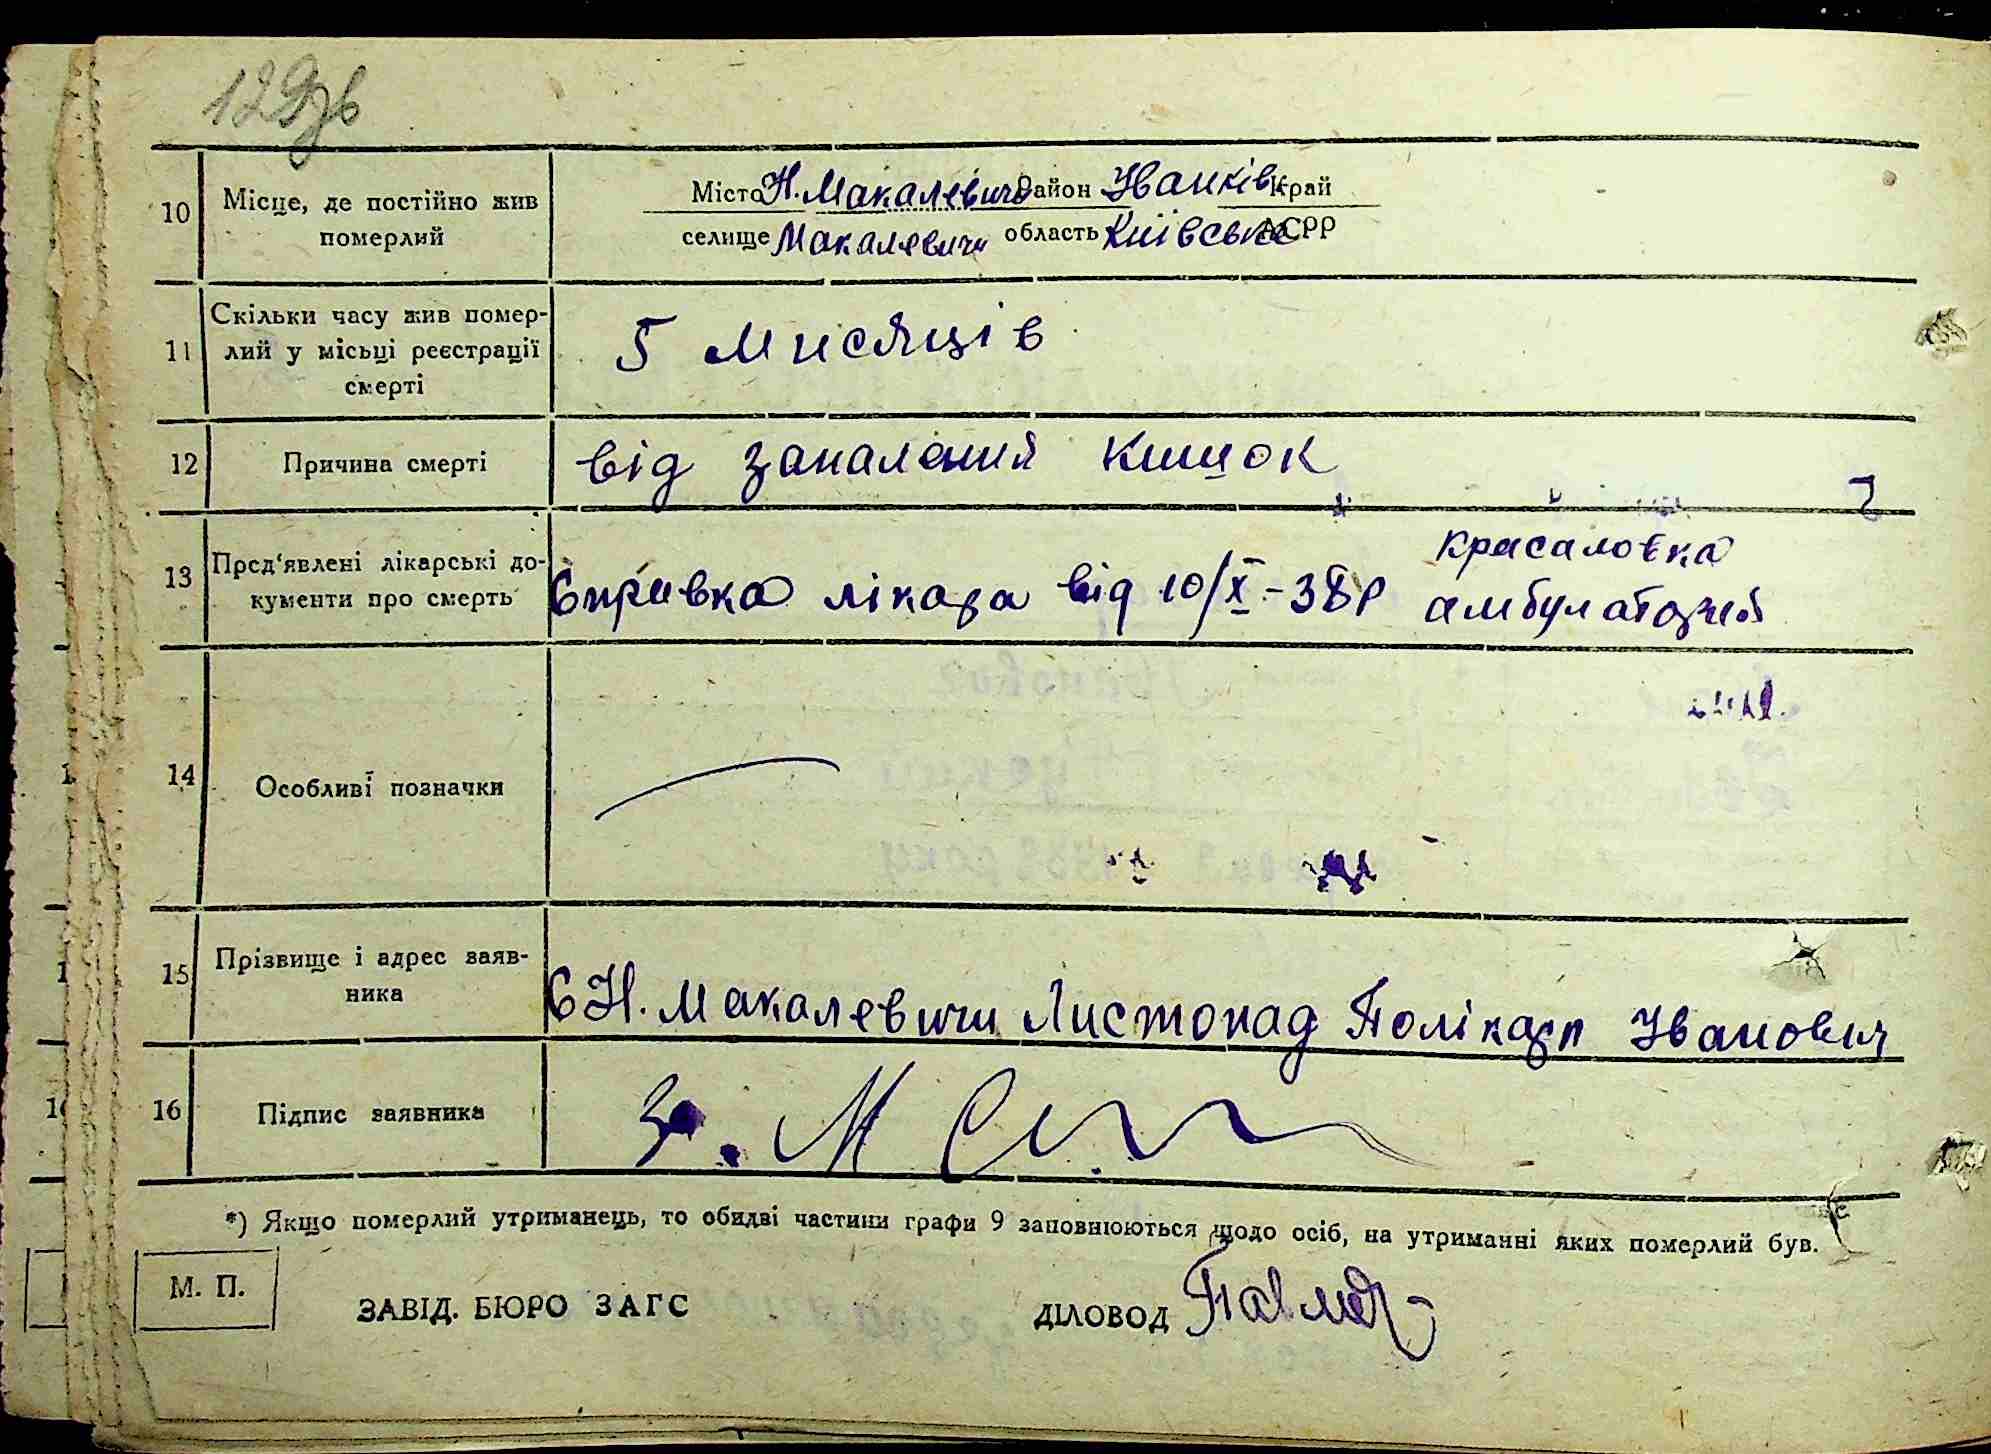 129зв
10 Місце, де постійно жив померлий
Місто Н. Макалевичі Район Іванків Край
селище Макалевичи область Київська АСРР
11 Скільки часу жив помер-
лий у місьці реєстрації
смерті
5 мисяців
12 Причина смерті від запалений кишок
13 Пред'явлені лікарські до-
кументи про смерть
Справка лікара від 10/X-38р красаловка
амбулаторий
14 Особливі позначки
15 Прізвище і адрес заяв-
ника
С Н. Макалевичи Листопад Полікарп Іванович
16 Підпис заявника За.
*) Якщо померлий утриманець, то обидві частини графи 9 заповнюються щодо осіб, на утриманні яких померлий був.
М. П.
ЗАВІД. БЮРО ЗАГС
ДІЛОВОД